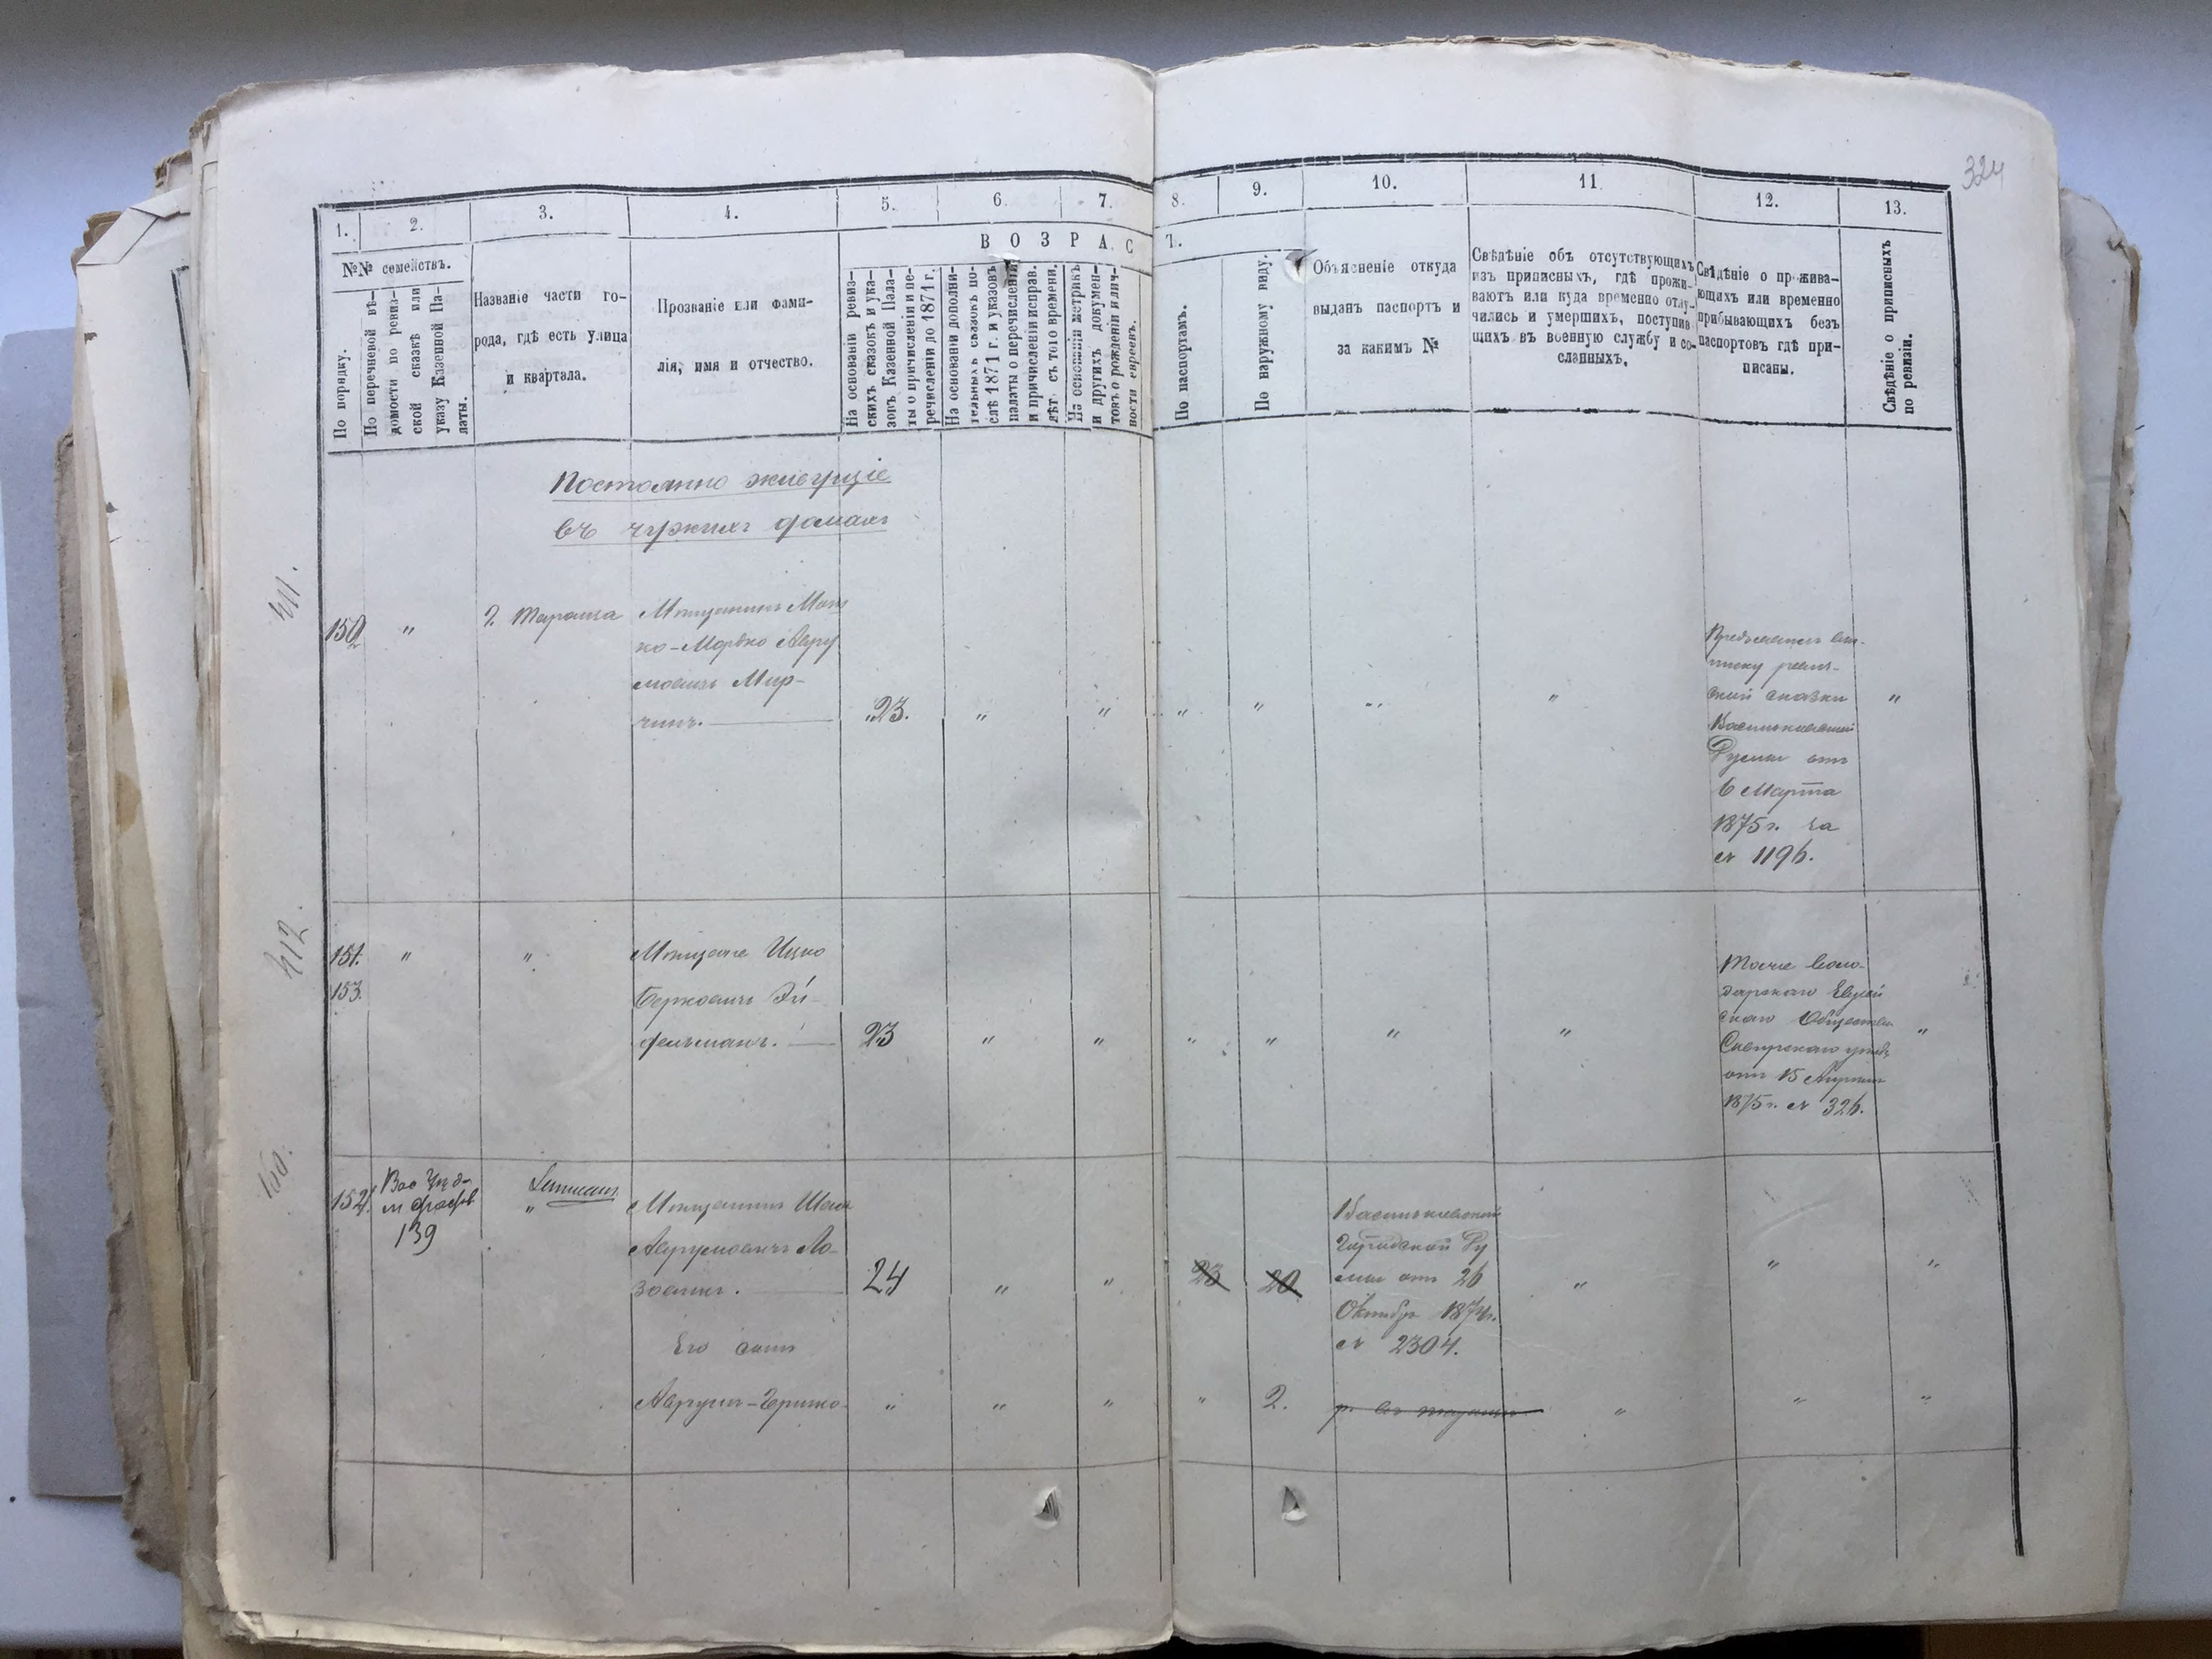 324
1.
2.
3.
4.
5.
6.
7.
8.
9.
10.
11
12.
13.
ВОЗРАС
Т.
№№ семействъ.
По порядку.
По перечневой вѣ-
домости по ревиз-
ской сказкѣ или
указу Казенной Па-
латы.
Названіе части го-
рода, гдѣ есть улица
и квартала.
Прозваніе или фами-
лія, имя и отчество.
На основаніи ревиз-
скихъ сказокъ и ука-
зовъ Казенной Пала-
ты о причисленіи и пе-
речисленіи до 1871 г.
На основаніи дополни-
тельныхъ сказокъ по-
слѣ 1871 г. и указовъ
палаты о перечисленіи
и причисленіи исправ.
лѣт. съ того времени.
На основаніи метрикъ
и другихъ докумен-
товъ о рожденіи и лич-
ности евреевъ.
По паспортамъ.
По наружному виду.
Объясненіе откуда
выданъ паспортъ и
за какимъ №
Свѣдѣніе объ отсутствующихъ
изъ приписныхъ, гдѣ прожи-
ваютъ или куда временно отлу-
чились и умершихъ, поступив
щихъ въ военную службу и со-
сланныхъ.
Свѣдѣніе о прожива-
ющихъ или временно
прибывающихъ безъ
паспортовъ гдѣ при-
писаны.
Свѣдѣніе о приписныхъ
по ревизіи.
Постоянно живущіе
въ чужихъ домахъ
411.
150
2
"
г. Тараща
Мѣщанинъ Мош
ко-Мордко Авру
мовичъ Мир-
чинъ.
23.
" " " " " "
Предъявилъ вы-
писку ревиз-
ской сказки
Васильковской
Думы отъ
6 Марта
1875 г. за
№ 1196.
"
412.
151.
153.
" "
Мѣщане Ицко
Берковичъ Эй-
дельманъ.
23
" " " " " "
Тоже Воло-
дарскаго Еврей
скаго Общества
Сквирскаго уѣзда
отъ 15 Апрѣля
1875 г. № 326.
"
152
4.
139
"
Мѣщанинъ
Аврумовичъ Ло-
зовикъ.
24
" "
23
20
Васильковской
Городской Ду
мы отъ 26
Октября 1874 г.
№ 2304.
" " "
Его сынъ
Аврумъ-Гершко
" " " "
2.
" " "